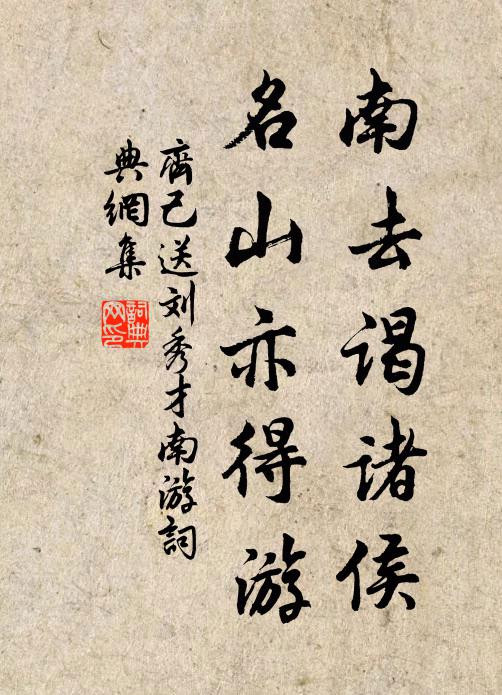 南去谒诸侯
名山亦得游
齊己送刘秀才南游詞
典網集
詞典
网印